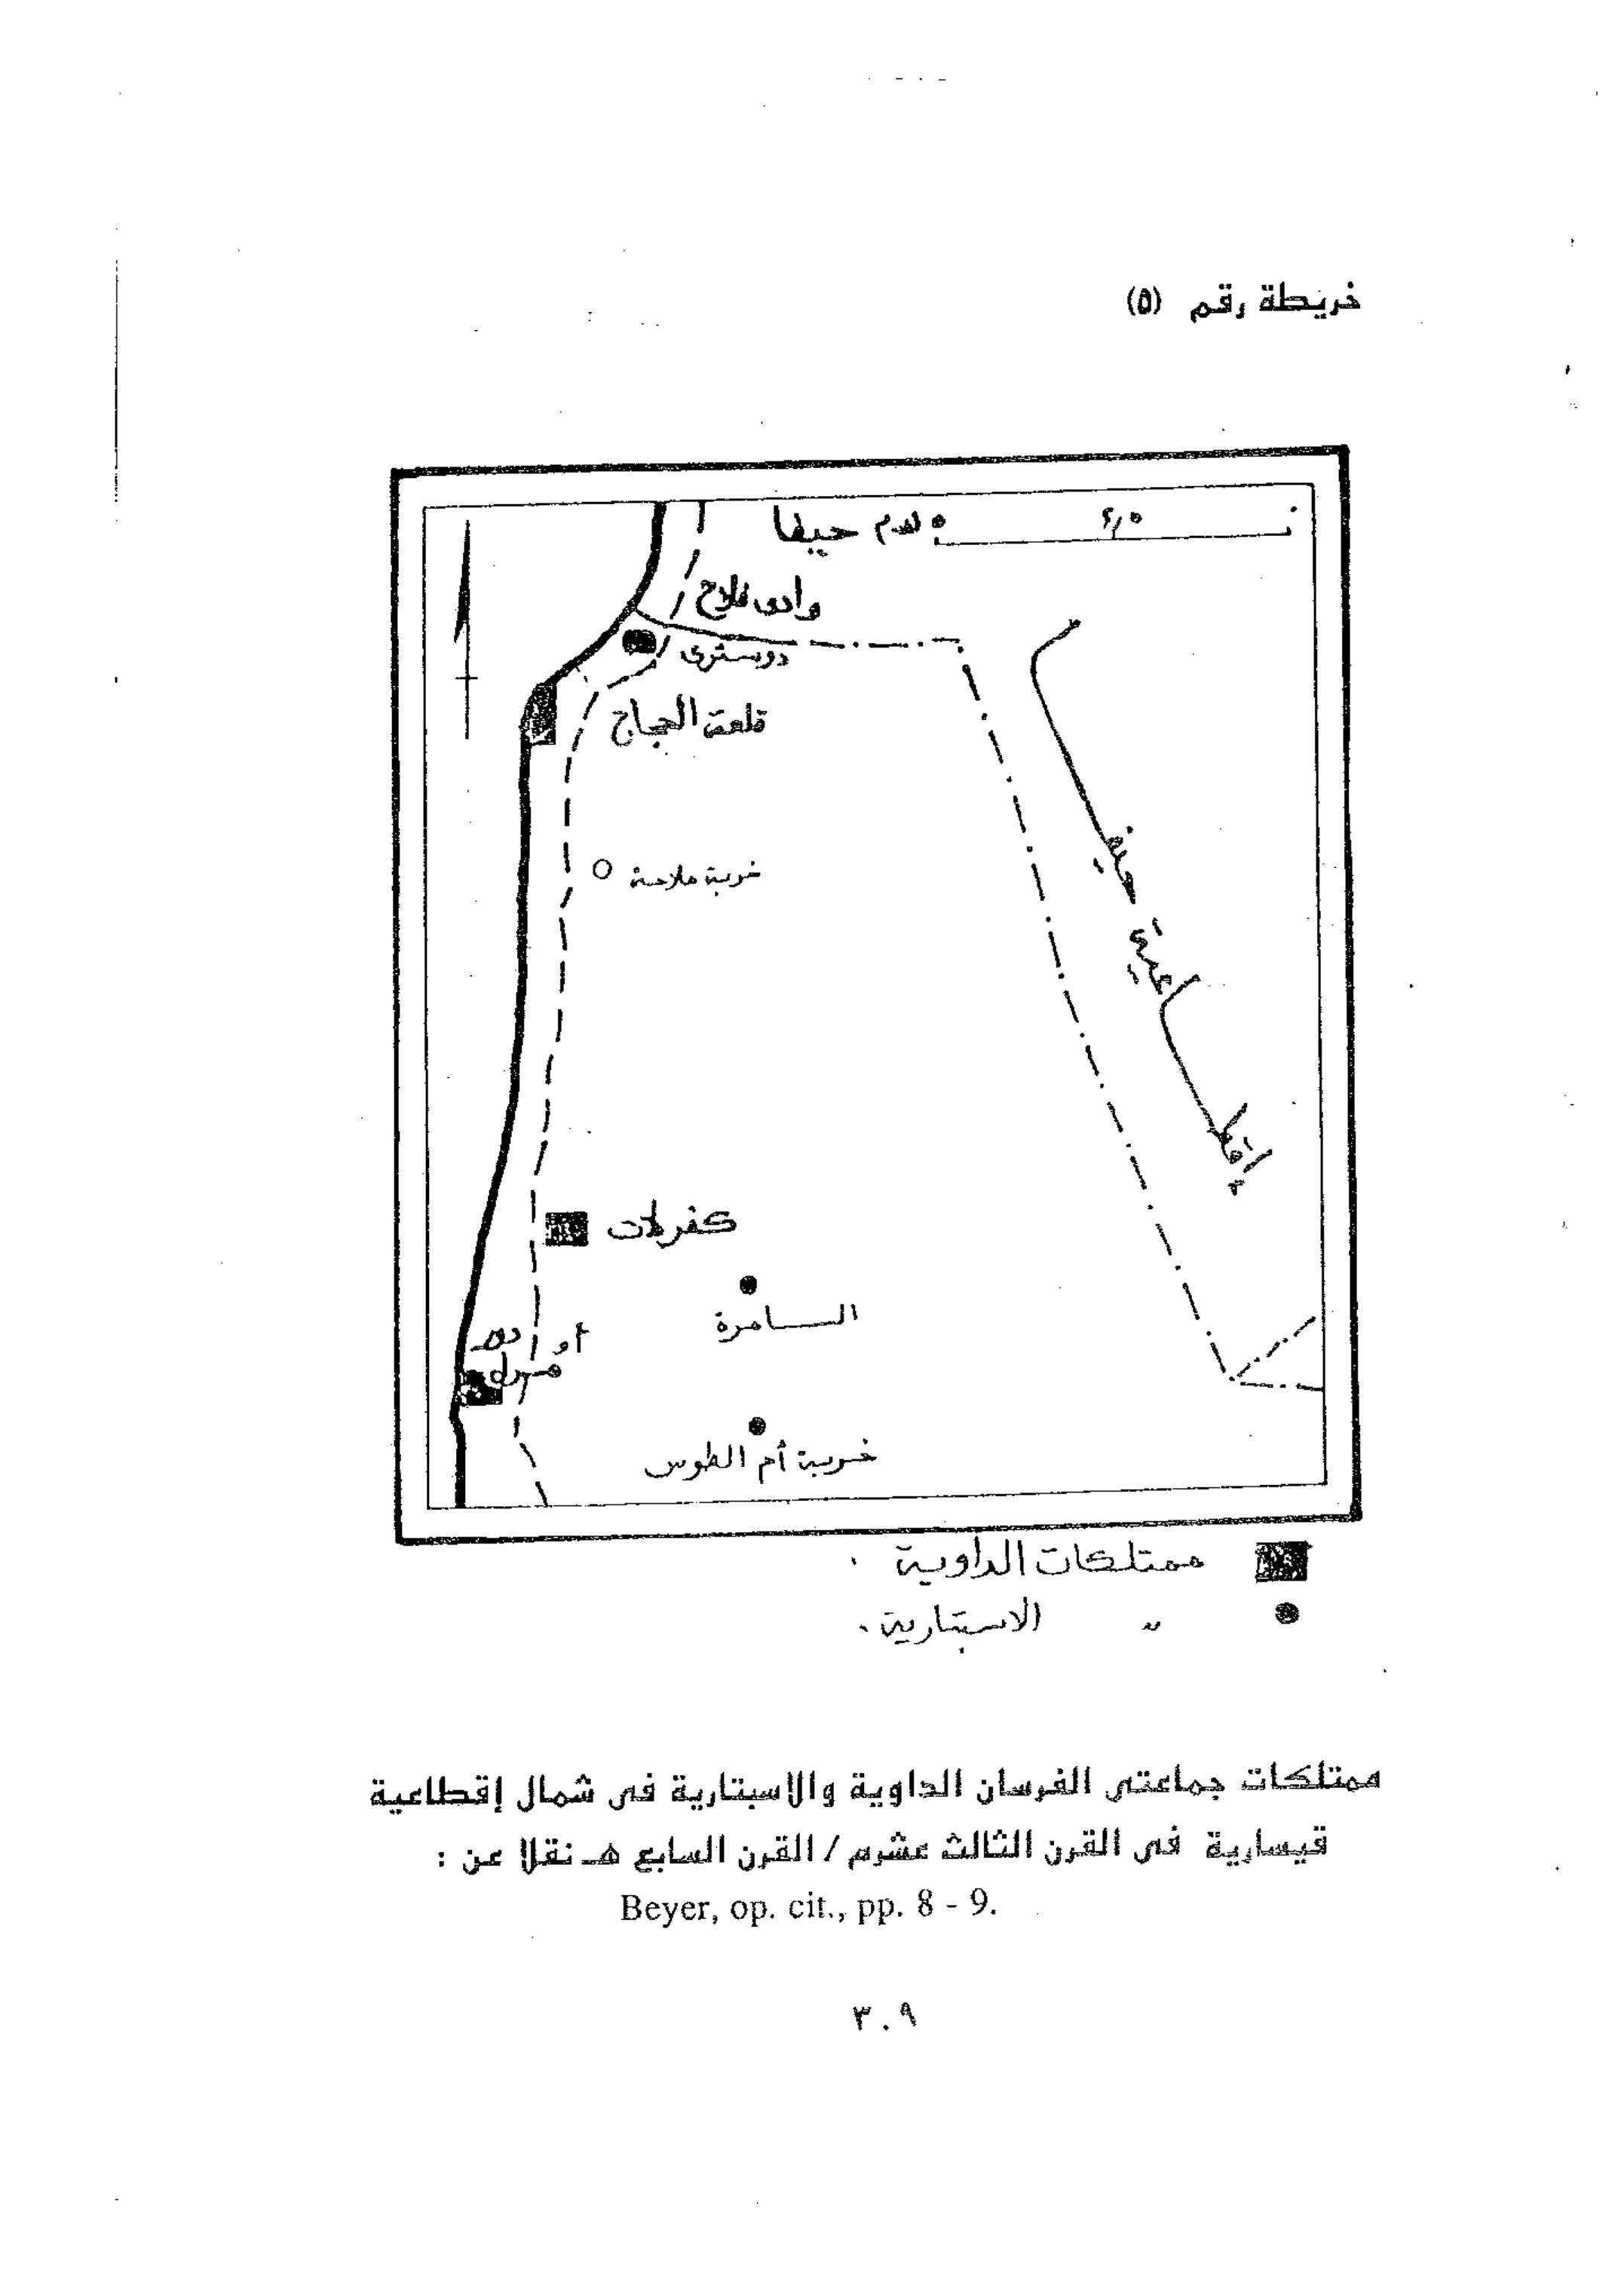 خريطة رقم (٥)
حيفا
٢,٥
وادى فلاح
دوسترى
قلعة الحجاج
خربة ملاحة
إقطاعية حيفا
كفرلات
السامرة
دور
أو
مرل
خربة أم الطوس
ممتلكات الداوية .
〃 الاسبتارية .
ممتلكات جماعتى الفرسان الداوية والاسبتارية فى شمال إقطاعية
قيسارية فى القرن الثالث عشرم / القرن السابع هـ نقلا عن :
Beyer, op. cit., pp. 8 - 9.
٣٠٩